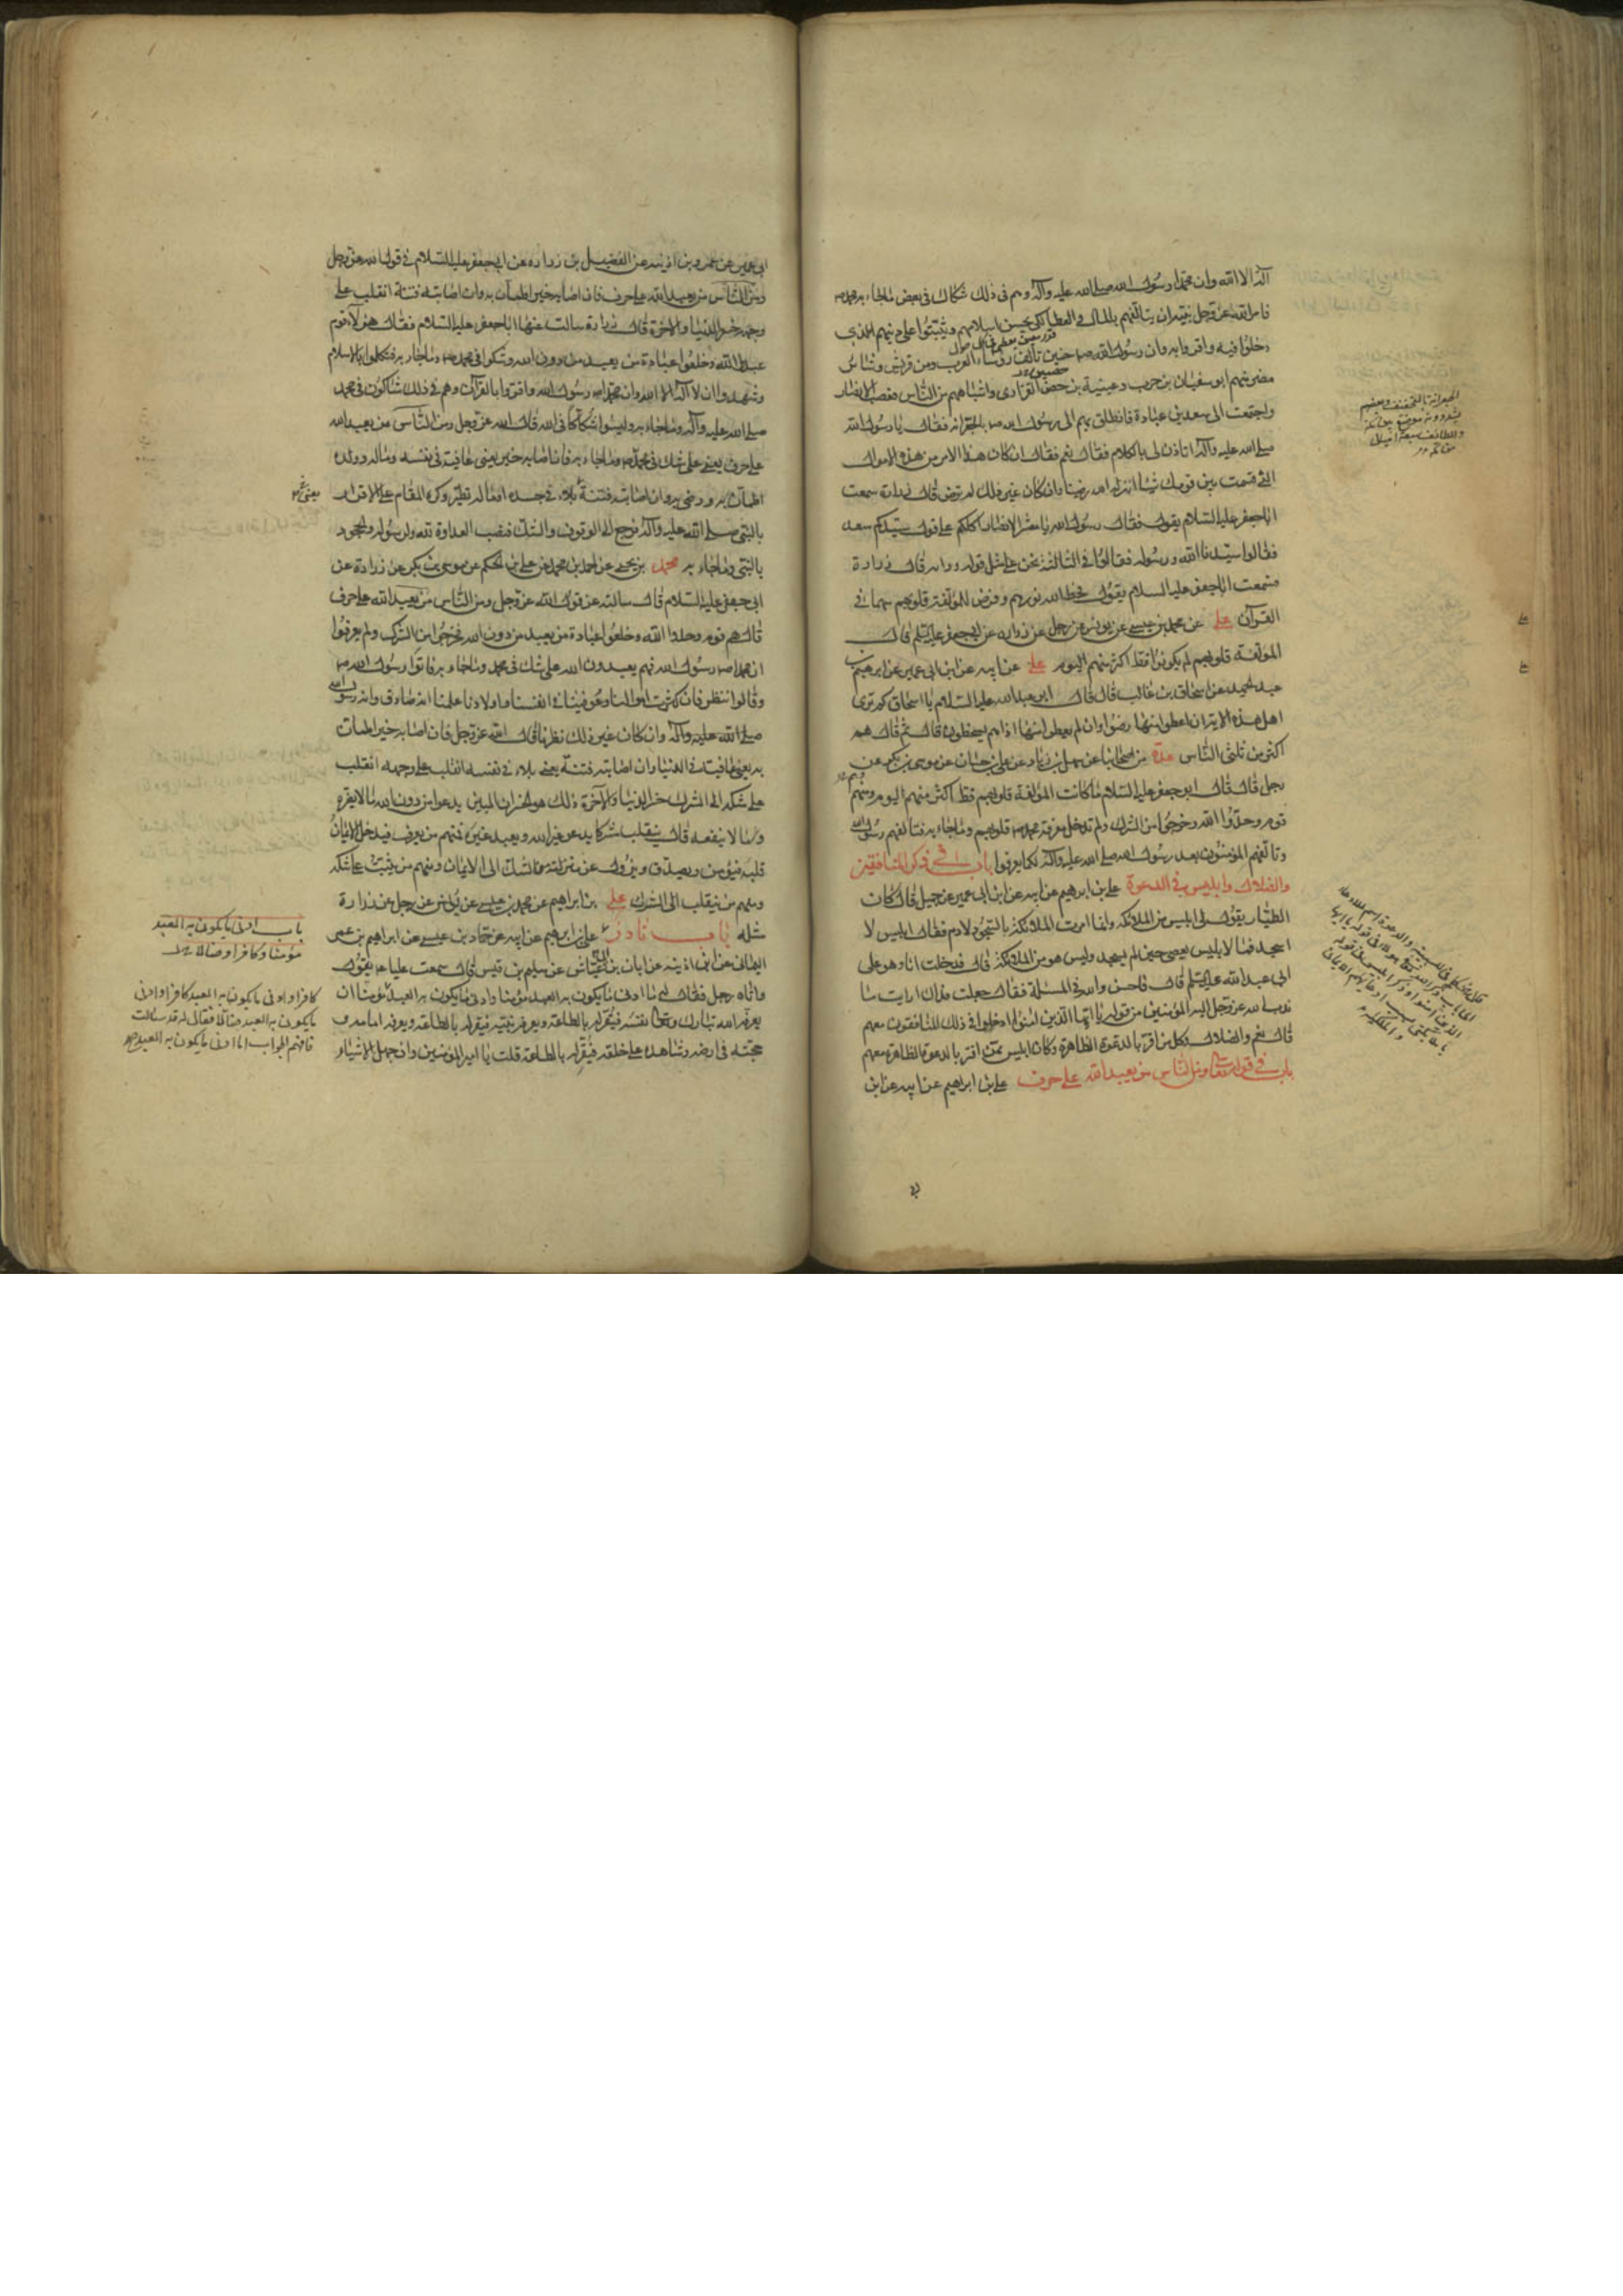 آله الا الله وان محمدا رسول الله صلى الله عليه وآله وهم في ذلك شكاك في بعض ما جاء به محمد ص
فامر الله عز وجل نبيه ان يتألفهم بالمال والعطا لكي يحسن اسلامهم ويثبتوا على دينهم الذي
دخلوا فيه واقروا به وان رسول الله ص حنين تألف رؤساء العرب ومن قريش وسائر
مضر منهم ابو سفيان بن حرب وعيينة بن حصين الفزاري واشباههم من الناس فغضب الانصار
واجتمعت الى سعد بن عبادة فانطلق بهم الى رسول الله ص بالجعرانة فقال يا رسول الله
صلى الله عليه وآله اتاذن لي بالكلام فقال نعم فقال ان كان هذا الامر من هذه الاموال
التي قسمت بين قومك شيئا انزله الله رضينا وان كان غير ذلك لم نرض قال زرارة سمعت
ابا جعفر عليه السلام يقول فقال رسول الله يا معشر الانصار اكلكم على قول سيدكم سعد
فقالوا سيدنا الله ورسوله فقالوا في الثالثة نحن على مثل قوله ورايه قال زرارة
فسمعت ابا جعفر عليه السلام يقول فحط الله نورهم وفرض للمؤلفة قلوبهم سهما في
القرآن علي عن محمد بن عيسى عن يونس عن رجل عن زرارة عن ابي جعفر عليه السلم قال
المؤلفة قلوبهم لم يكونوا قط اكثر منهم اليوم علي عن ابيه عن ابن ابي عمير عن ابرهيم بن
عبد الحميد عن اسحاق بن غالب قال قال ابو عبد الله عليه السلام يا اسحاق كم ترى
اهل هذه الاية ان اعطوا منها رضوا وان لم يعطوا منها اذا هم يسخطون قال ثم قال هم
اكثر من ثلثي الناس عدة من اصحابنا عن سهل بن زياد عن علي بن حسان عن موسى بن بكر عن
رجل قال قال ابو جعفر عليه السلام ما كانت المؤلفة قلوبهم قط اكثر منهم اليوم وهم
قوم وحدوا الله وخرجوا من الشرك ولم تدخل معرفة محمد ص قلوبهم وما جاء به فتألفهم رسول الله
وتألفهم المؤمنون بعد رسول الله صلى الله عليه وآله لكيما يعرفوا باب في ذكر المنافقين
والضلال وابليس في الدعوة علي بن ابراهيم عن ابيه عن ابن ابي عمير عن جميل قال كان
الطيار يقول لي ابليس من الملائكة وانما امرت الملائكة بالسجود لادم فقال ابليس لا
اسجد فما لابليس يعصي حين لم يسجد وليس هو من الملائكة قال فدخلت انا وهو على
ابي عبد الله عليه السلم قال فاحسن والله في المسئلة فقال جعلت فداك ارايت ما
ندب الله عز وجل اليه المؤمنين من قوله يا ايها الذين امنوا ادخلوا في ذلك المنافقون معهم
قال نعم والضلال وكل من اقر بالدعوة الظاهرة وكان ابليس ممن اقر بالدعوة الظاهرة معهم
باب في قوله تعالى ومن الناس من يعبد الله على حرف علي بن ابراهيم عن ابيه عن ابن
الجعرانة بالتخفيف وبعضهم
يشدده موضع بين مكة
والطائف سبعة اميال
من مكة
ابي عمير عن عمرو بن اذينة عن الفضيل بن زرارة عن ابي جعفر عليه السلام في قول الله عز وجل
ومن الناس من يعبد الله على حرف فان اصابه خير اطمأن به وان اصابته فتنة انقلب على
وجهه خسر الدنيا والآخرة قال زرارة سالت عنها ابا جعفر عليه السلام فقال هؤلاء قوم
عبدوا الله وخلعوا عبادة من يعبد من دون الله وشكوا في محمد ص وما جاء به فتكلموا بالاسلام
وشهدوا ان لا آله الا الله وان محمدا رسول الله واقروا بالقرآن وهم في ذلك شاكون في محمد
صلى الله عليه وآله وما جاء به وليسوا شكاكا في الله قال الله عز وجل ومن الناس من يعبد الله
على حرف يعني على شك في محمد ص وما جاء به فان اصابه خير يعني عافية في نفسه وماله وولده
اطمأن به ورضي به وان اصابته فتنة بلاء في جسده او ماله تطير وكره المقام على الاقرار
بالنبي صلى الله عليه وآله فرجع الى الوقوف والشك فنصب العداوة لله ولرسوله والجحود
بالنبي وما جاء به محمد بن يحيى عن احمد بن محمد عن علي بن الحكم عن موسى بن بكر عن زرارة عن
ابي جعفر عليه السلام قال سالته عن قول الله عز وجل ومن الناس من يعبد الله على حرف
قال هم قوم وحدوا الله وخلعوا عبادة من يعبد من دون الله فخرجوا من الشرك ولم يعرفوا
ان محمدا ص رسول الله فهم يعبدون الله على شك في محمد وما جاء به فاتوا رسول الله ص
وقالوا ننظر فان كثرت اموالنا وعوفينا في انفسنا واولادنا علمنا انه صادق وانه رسول الله
صلى الله عليه وآله وان كان غير ذلك نظرنا قال الله عز وجل فان اصابه خير اطمان
به يعني عافية في الدنيا وان اصابته فتنة يعني بلاء في نفسه انقلب على وجهه انقلب
على شكه الى الشرك خسر الدنيا والآخرة ذلك هو الخسران المبين يدعوا من دون الله ما لا يضره
وما لا ينفعه قال ينقلب مشركا يدعو غير الله ويعبد غيره فمنهم من يعرف فيدخل الايمان
قلبه فيؤمن ويصدق ويزول عن منزلته من الشك الى الايمان ومنهم من يثبت على شكه
ومنهم من ينقلب الى الشرك علي بن ابراهيم عن محمد بن عيسى عن يونس عن رجل عن زرارة
مثله باب نادر علي بن ابرهيم عن ابيه عن حماد بن عيسى عن ابراهيم بن عمر
اليماني عن ابن اذينه عن ابان بن ابي عياش عن سليم بن قيس قال سمعت عليا ع يقول
واتاه رجل فقال له ما ادنى ما يكون به العبد مؤمنا وادنى ما يكون به العبد مؤمنا ان
يعرفه الله تبارك وتعالى نفسه فيقر له بالطاعة ويعرفه نبيه فيقر له بالطاعة ويعرفه امامه و
حجته في ارضه وشاهده على خلقه فيقر له بالطاعة قلت يا امير المؤمنين وان جهل الاشياء
يعني
باب ادنى ما يكون به العبد
مؤمنا وكافرا وضالا
كافرا وادنى ما يكون به العبد كافرا وادنى
ما يكون به العبد ضالا فقال له قد سالت
فافهم الجواب اما ادنى ما يكون به العبد